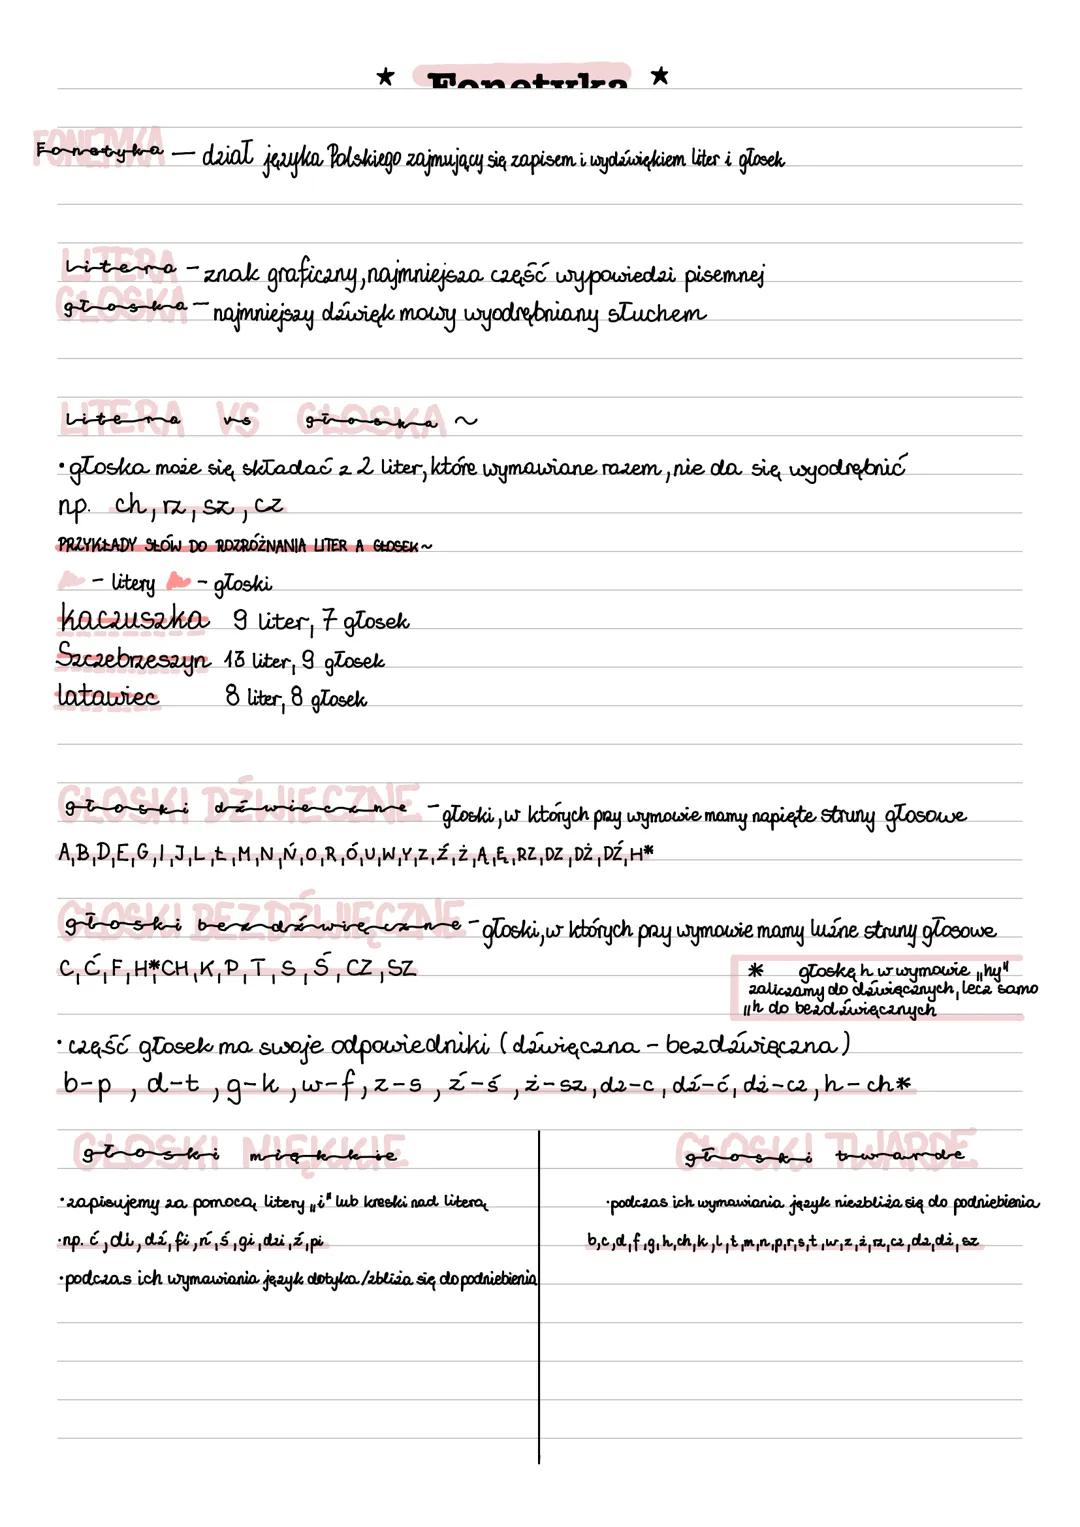 ★ Fonetyka ★
Fonetyka — dział języka Polskiego zajmujący się zapisem i wydźwiękiem liter i głosek
Litera - znak graficzny, najmniejsza część wypowiedzi pisemnej
głoska - najmniejszy dźwięk mowy wyodrębniany słuchem
Litera vs głoska ~
• głoska może się składać z 2 liter, które wymawiane razem, nie da się wyodrębnić
np. ch, rz, sz, cz
PRZYKŁADY SŁÓW DO ROZRÓŻNANIA LITER A GŁOSEK ~
- litery - głoski
kaczuszka 9 liter, 7 głosek
Szczebrzeszyn 13 liter, 9 głosek
latawiec 8 liter, 8 głosek
głoski dźwięczne - głoski, w których przy wymowie mamy napięte struny głosowe
A, B, D, E, G, I, J, L, Ł, M, N, Ń, O, R, Ó, U, W, Y, Z, Ź, Ż, Ą, Ę, RZ, DZ, DŻ, DŹ, H*
głoski bezdźwięczne - głoski, w których przy wymowie mamy luźne struny głosowe
C, Ć, F, H* CH, K, P, T, S, Ś, CZ, SZ
* głoskę h w wymowie „hy"
zaliczamy do dźwięcznych, lecz samo
„h do bezdźwięcznych
• część głosek ma swoje odpowiedniki (dźwięczna - bezdźwięczna)
b-p, d-t, g-k, w-f, z-s, ź-ś, ż-sz, dz-c, dź-ć, dż-cz, h-ch*
głoski miękkie
• zapisujemy za pomocą litery „i" lub kreski nad literą
• np. ć, di, dź, fi, ń, ś, gi, dzi, ź, pi
• podczas ich wymawiania język dotyka/zbliża się do podniebienia
głoski twarde
• podczas ich wymawiania język niezbliża się do podniebienia
b, c, d, f, g, h, ch, k, l, ł, m, n, p, r, s, t, w, z, ż, rz, cz, dz, dż, sz